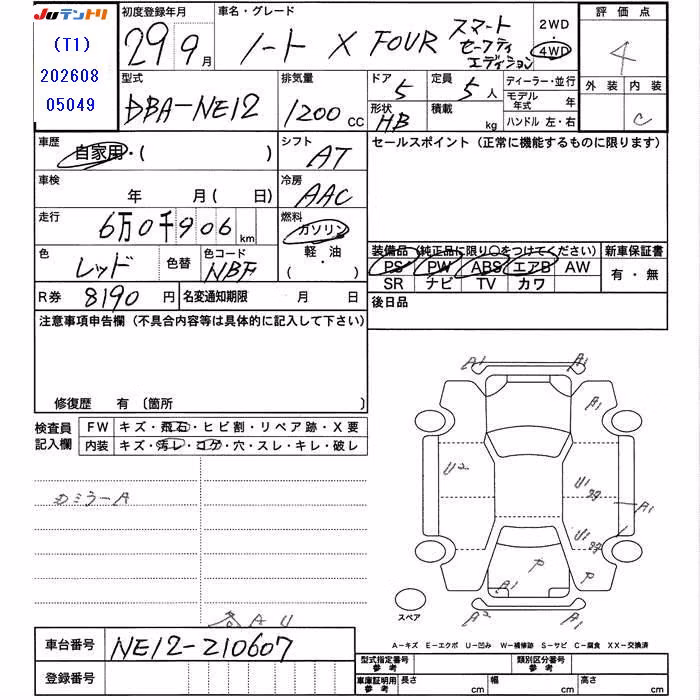 Juテントリ
(T1)
202608
05049
初度登録年月
29 9月
車名・グレード
ノート X FOUR スマート
セーフティ
エディション
2WD
4WD
評価点
4
型式
DBA-NE12
排気量
1200 CC
ドア 5
定員 5 人
形状 HB
積載 kg
ディーラー・並行
モデル年式 年
ハンドル 左・右
外装 内装
C
車歴 自家用・( )
シフト AT
セールスポイント (正常に機能するものに限ります)
車検 年 月( 日)
冷房 AAC
走行 6万0千906km
燃料 ガソリン
軽・油
・( )
色 レッド 色替
色コード NBF
装備品 (純正品に限り○をつけてください)
新車保証書
PS PW ABS エアB AW
有・無
SR ナビ TV カワ
R券 8190 円
名変通知期限 月 日
後日品
注意事項申告欄 (不具合内容等は具体的に記入して下さい)
修復歴 有 (箇所 )
検査員
記入欄
FW キズ・飛石・ヒビ割・リペア跡・X要
内装 キズ・汚レ・コゲ・穴・スレ・キレ・破レ
カミラーA
各AU
A1 A1
A1
U2 U1
A1
U1
ア
A1 ア
スペア
A2 A1
A-キズ E-エクボ U-凹み W-補修跡 S-サビ C-腐食 XX-交換済
車台番号 NE12-210607
登録番号
型式指定番号
参考
類別区分番号
参考
車庫証明用
参考
長さ cm 幅 cm 高さ cm